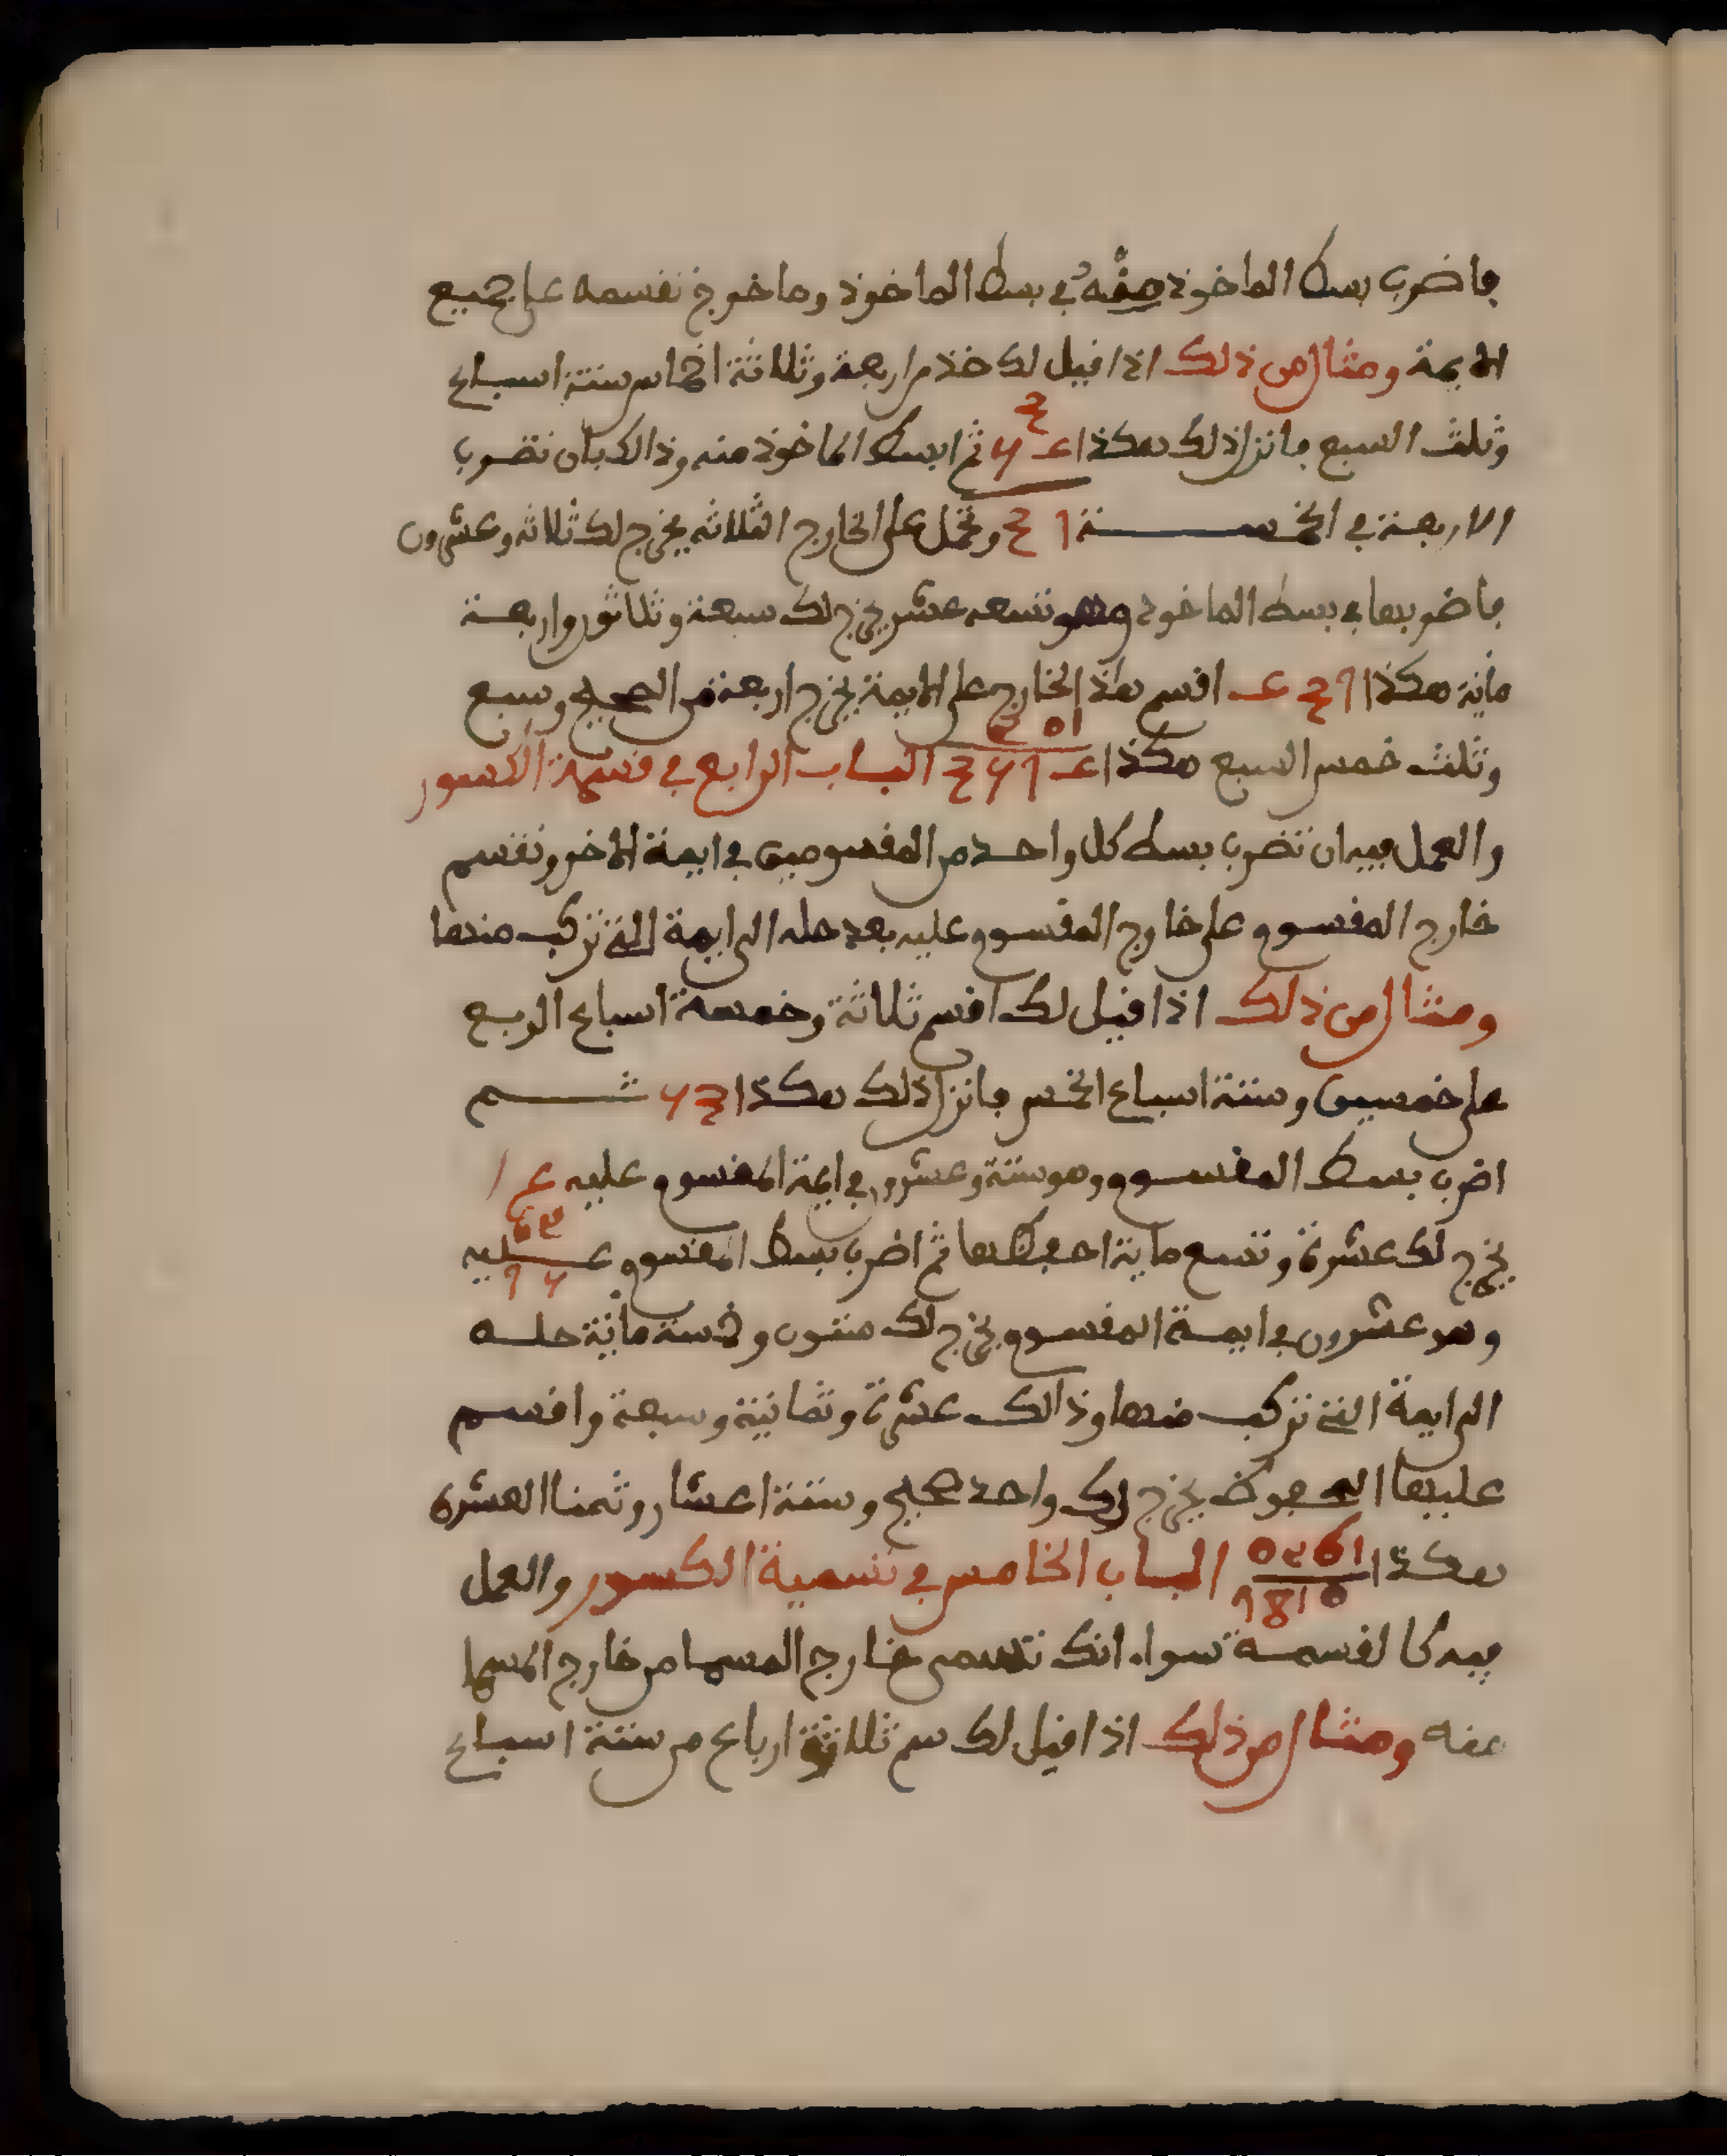 فاضرب بسط الماخوذ منه في بسط الماخوذ وما خرج تقسمه على جميع
الايمة ومثال من ذلك اذا قيل لك خذ من اربعة وثلاثة اخماس ستة اسباع
وثلث السبع فانزل ذلك هكذا ثم ابسط الماخوذ منه وذالك بان تضرب
الاربعة في الخمسة وتحمل على الخارج الثلاثه يخرج لك ثلاثه وعشرون
فاضربها في بسط الماخوذ وهو تسعه عشر يخرج لك سبعة وثلاثون واربعة
مائة هكذا اقسم هذا الخارج على الايمة يخرج اربعة من الصحيح وسبع
وثلث خمس السبع هكذا الباب الرابع في قسمة الكسور
والعمل فيه ان تضرب بسط كل واحد من المقسومين في ايمة الاخر وتقسم
خارج المقسوم على خارج المقسوم عليه بعد حله الى ايمة التي تركب منها
ومثال من ذلك اذا قيل لك اقسم ثلاثة وخمسة اسباع الربع
على خمسين وستة اسباع الخمس فانزل ذلك هكذا ثم
اضرب بسط المقسوم وهو ستة وعشرون في ايمة المقسوم عليه
يخرج لك عشرة وتسع ماية احفظها ثم اضرب بسط المقسوم عليه
وهو عشرون في ايمة المقسوم يخرج لك ستون وخمسة مائة حله
الى ايمة التي تركب منها وذالك عشرة وثمانية وسبعة واقسم
عليها المحفوظ يخرج لك واحد صحيح وستة اعشار وثمنا العشرة
هكذا الباب الخامس في تسمية الكسور والعمل
فيه كالقسمة سواء انك تسمي خارج المسما من خارج المسما
منه ومثال من ذلك اذا قيل لك سم ثلاثة ارباع من ستة اسباع